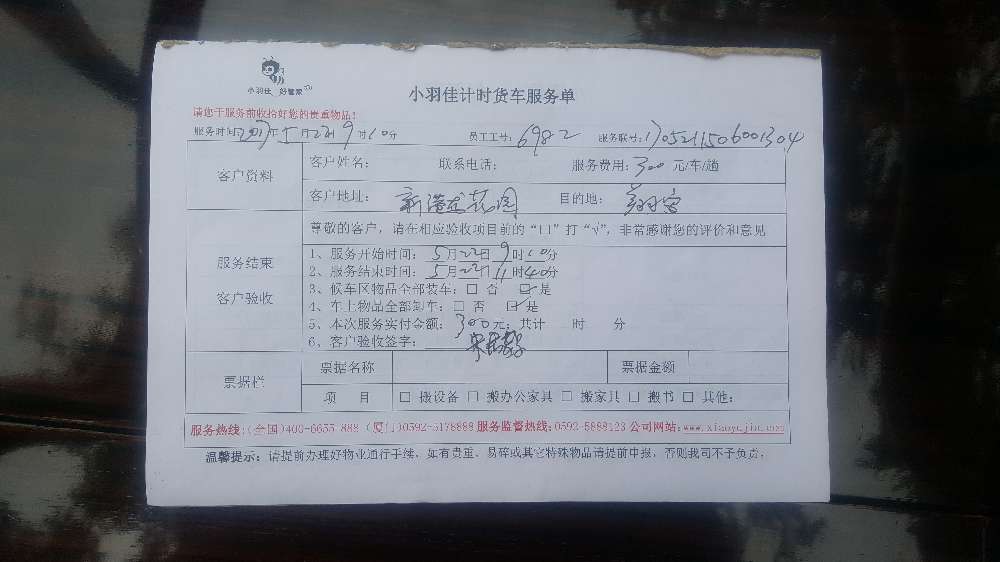 小羽佳 好管家
小羽佳计时货车服务单
请您于服务前收拾好您的贵重物品!
服务时间:2017年5月22日9时10分 员工工号:6982 服务联号:1705211506001304
客户资料
客户姓名: 联系电话: 服务费用:300元/车/趟
客户地址: 新港龙花园 目的地:
尊敬的客户,请在相应验收项目前的“口”打“√”,非常感谢您的评价和意见
服务结束
客户验收
1、服务开始时间:5月22日9时10分
2、服务结束时间:5月22日11时40分
3、候车区物品全部装车:□ 否 ☑ 是
4、车上物品全部卸车:□ 否 ☑ 是
5、本次服务实付金额:300元;共计 时 分
6、客户验收签字:
票据栏
票据名称 票据金额
项 目 □ 搬设备 □ 搬办公家具 □ 搬家具 □ 搬书 □ 其他:
服务热线:(全国)400-6655-888 (厦门)0592-5178888 服务监督热线:0592-5888123 公司网站:www.xiaoyujia.com
温馨提示:请提前办理好物业通行手续,如有贵重、易碎或其它特殊物品请提前申报,否则我司不予负责;